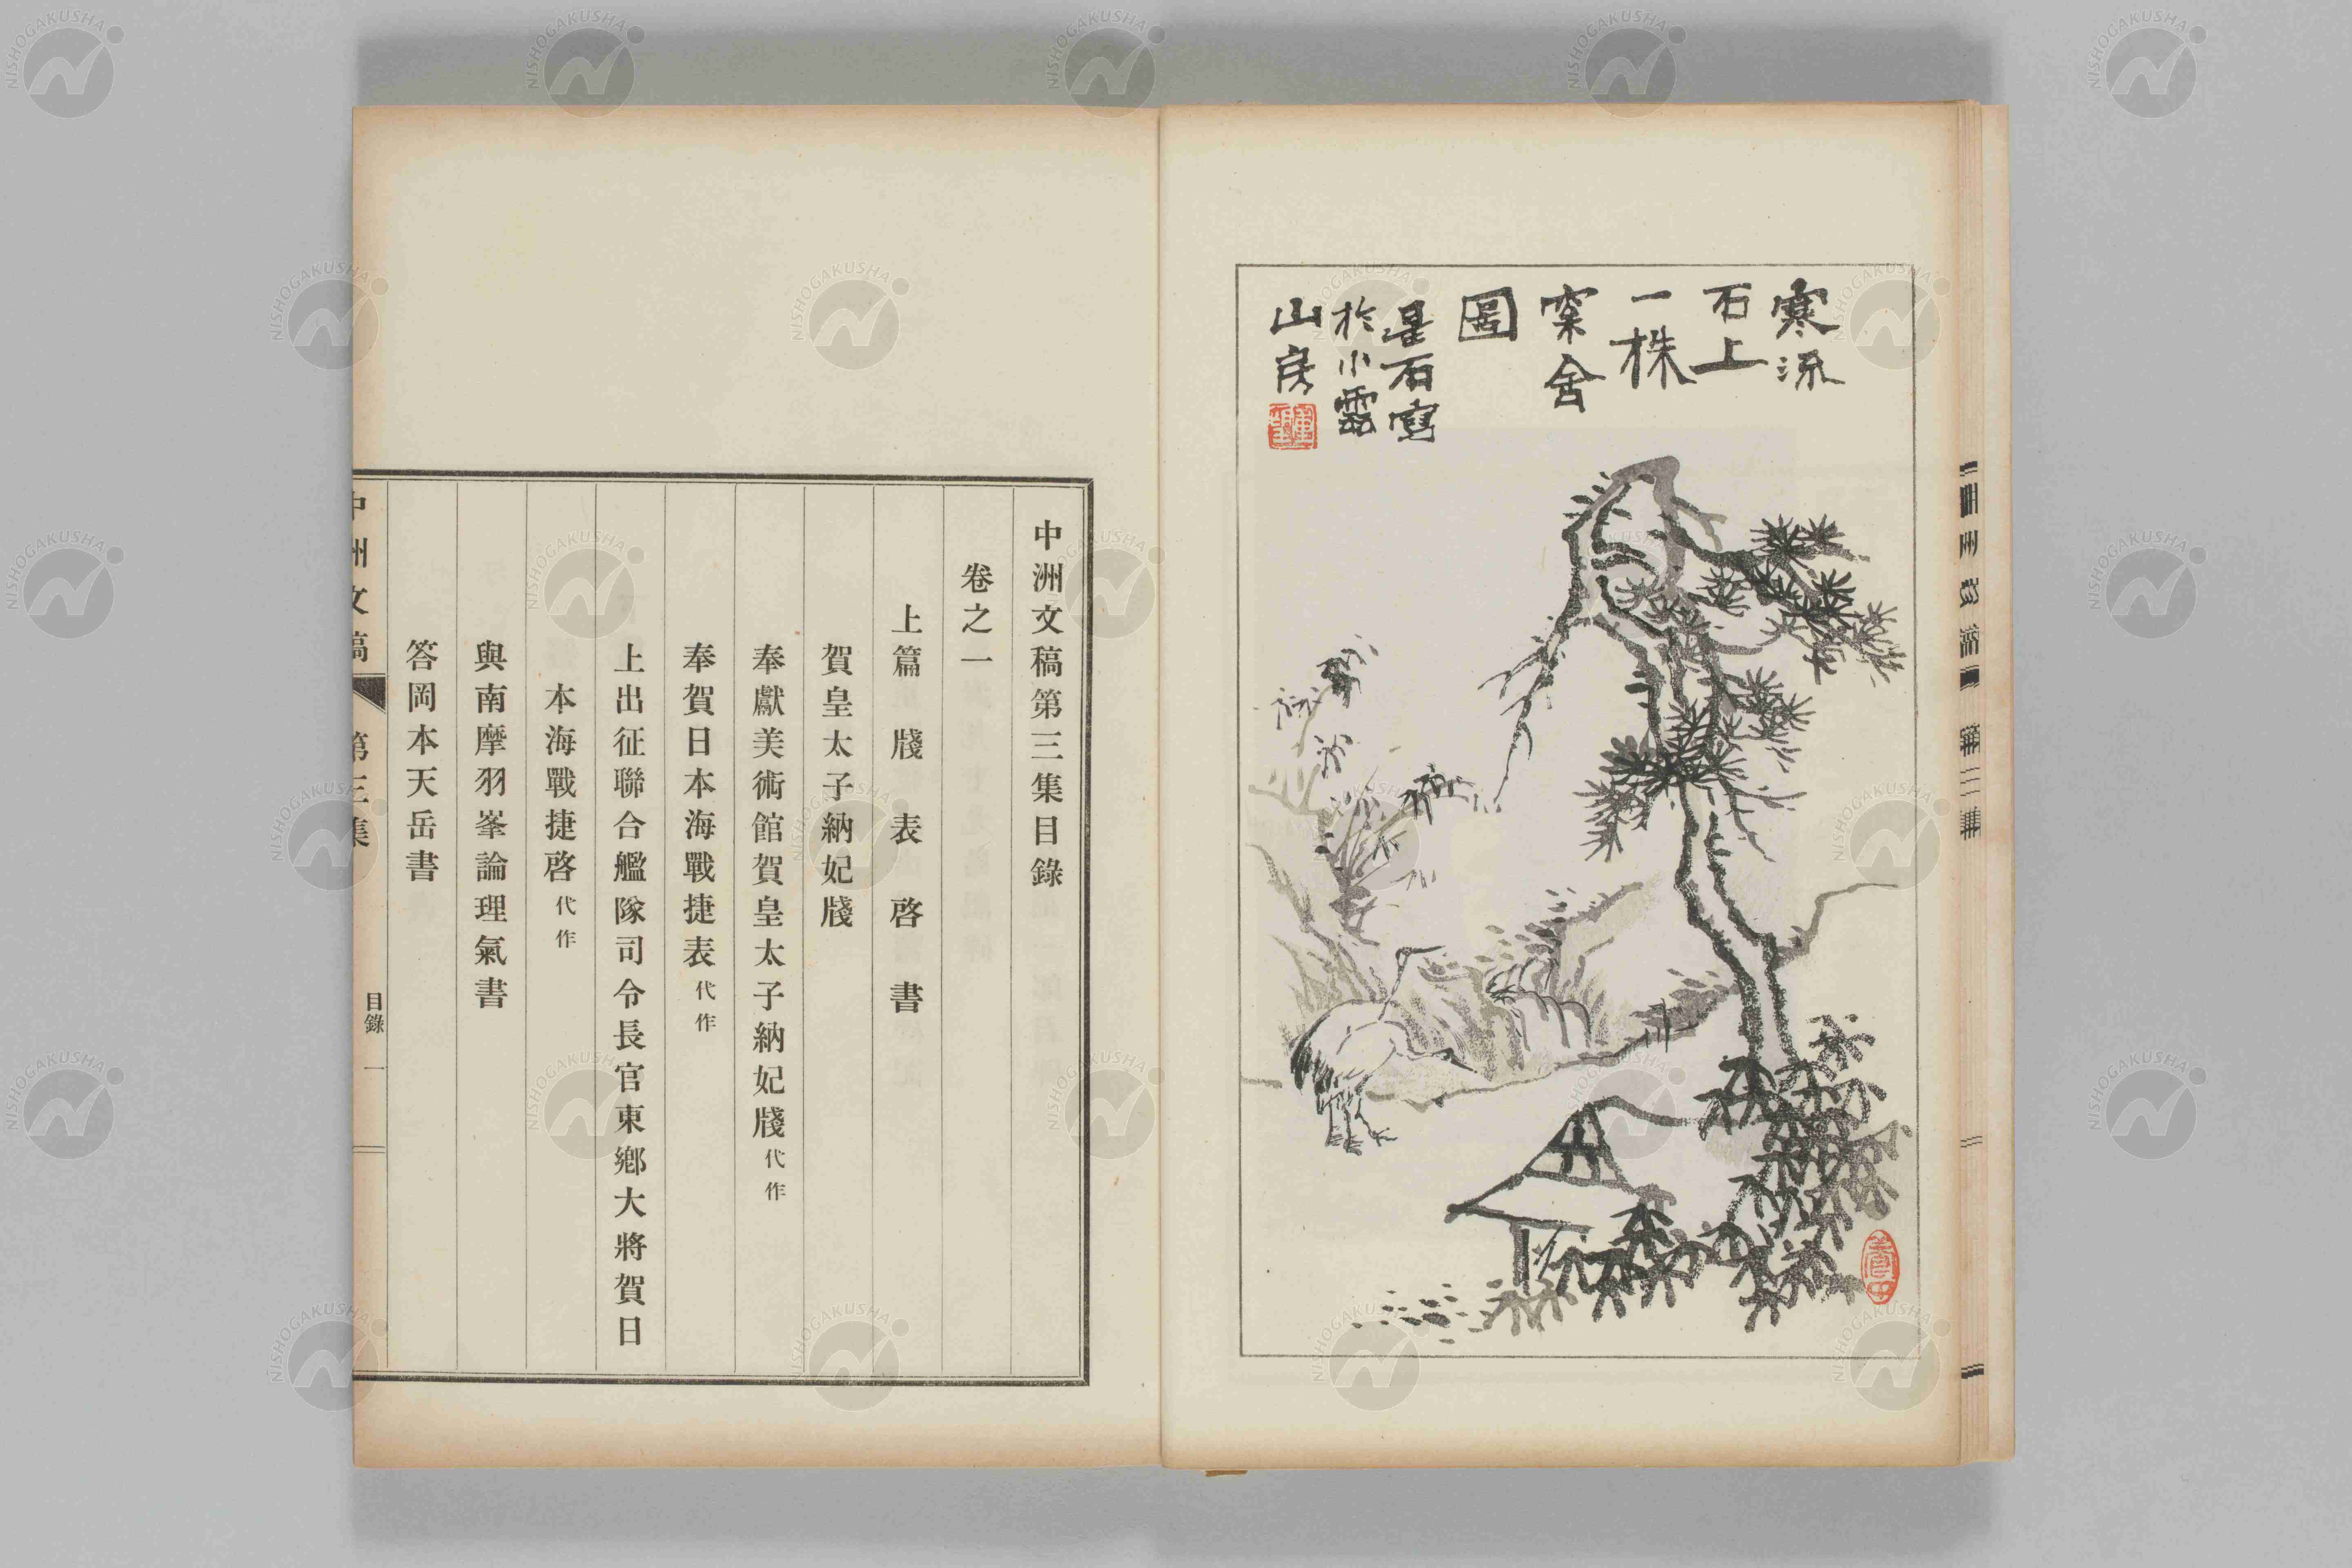 寒流
石上
一株
案舍
圖
星石寫
於小雲
山房
中洲文稿第三集目錄
卷之一
上篇 牋 表 啓 書
賀皇太子納妃牋
奉獻美術館賀皇太子納妃牋代作
奉賀日本海戰捷表代作
上出征聯合艦隊司令長官東鄉大將賀日
本海戰捷啓代作
與南摩羽峯論理氣書
答岡本天岳書
中洲文稿 第三集 目錄 一
NISHOGAKUSHA